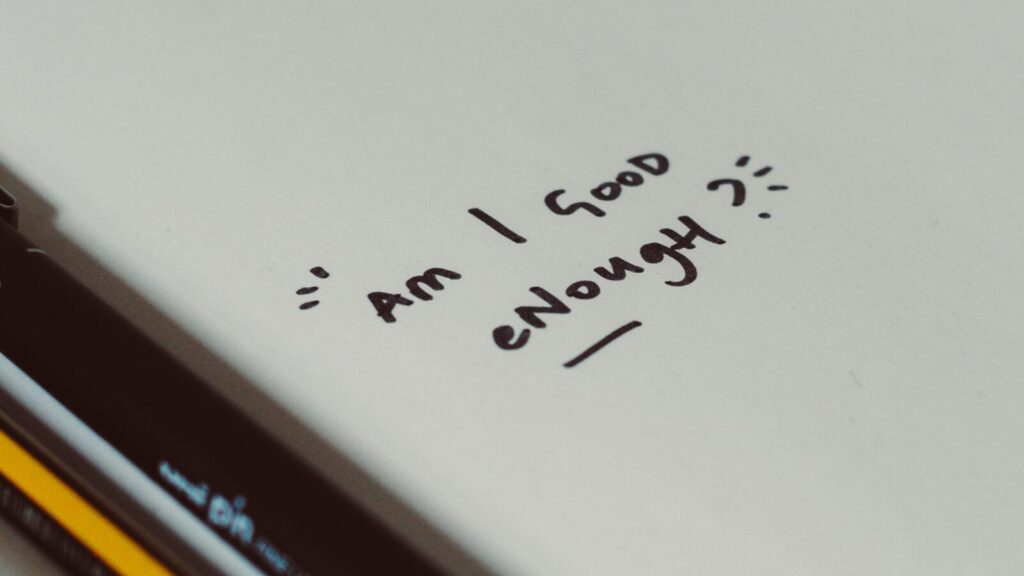 Am I GOOD
eNougH?
uni